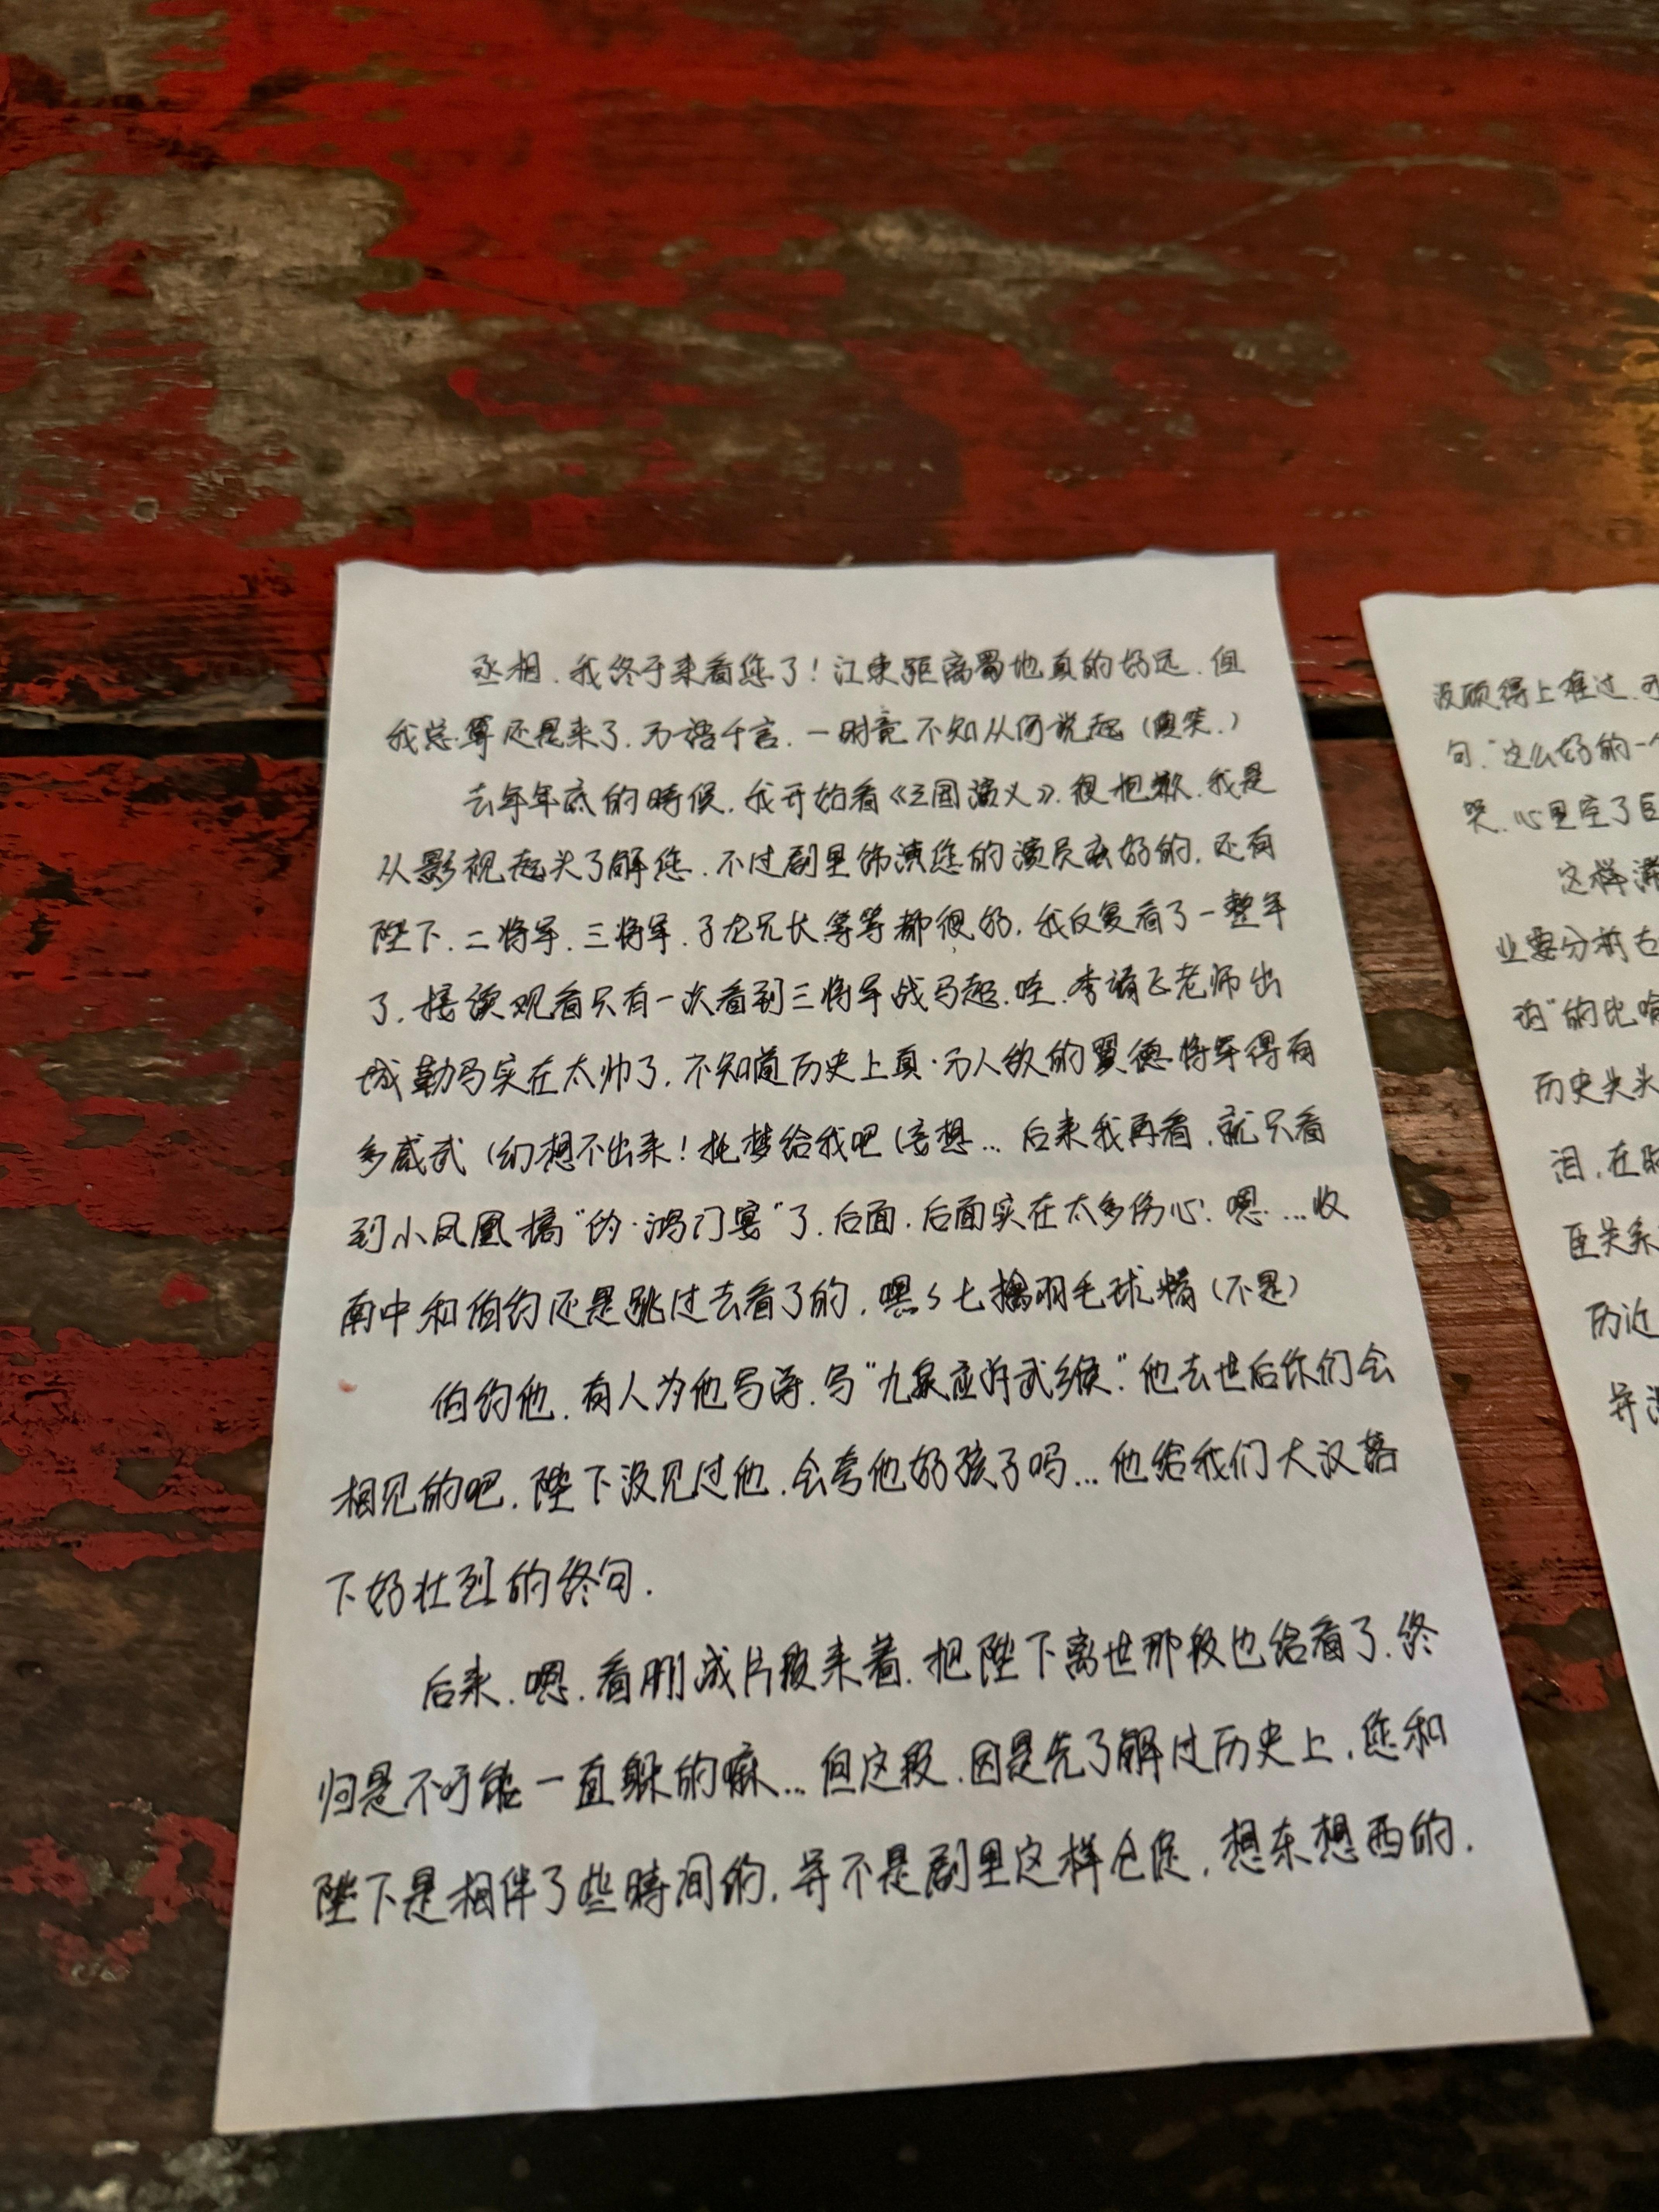 丞相，我终于来看您了！江东距离蜀地真的好远，但
我总算还是来了，万语千言，一时竟不知从何说起（傻笑.）
去年年底的時候，我开始看《三国演义》，很抱歉，我是
从影视起头了解您，不过剧里饰演您的演员蛮好的，还有
陛下，二将军，三将军，子龙兄长等等都很好，我反复看了一整年
了，接读观看只有一次看到三将军战马超，哇，李靖飞老师出
城勒马实在太帅了，不知道历史上真·万人敌的翼德将军得有
多威武（幻想不出来！托梦给我吧（妄想… 后来我再看，就只看
到小凤凰搞“的·鸿门宴”了，后面，后面实在太多伤心，嗯……收
南中和伯约还是跳过去看了的，嘿嘿七擒羽毛球精（不是）
伯约他，有人为他写诗，写“九泉应许武侯”，他去世后你们会
相见的吧，陛下没见过他，会夸他好孩子吗…他给我们大汉落
下好壮烈的终句.
后来，嗯，看删减片段来着，把陛下离世那段也给看了，终
归是不可能一直躲的嘛…但这段，因是先了解过历史上，您和
陛下是相伴了些時间的，并不是剧里这样仓促，想东想西的，
没顾得上难过，
句，“这么好的一
哭，心里空了
这样
业要分
的”的比喻
历史头头
泪，在
臣关系
历近
并